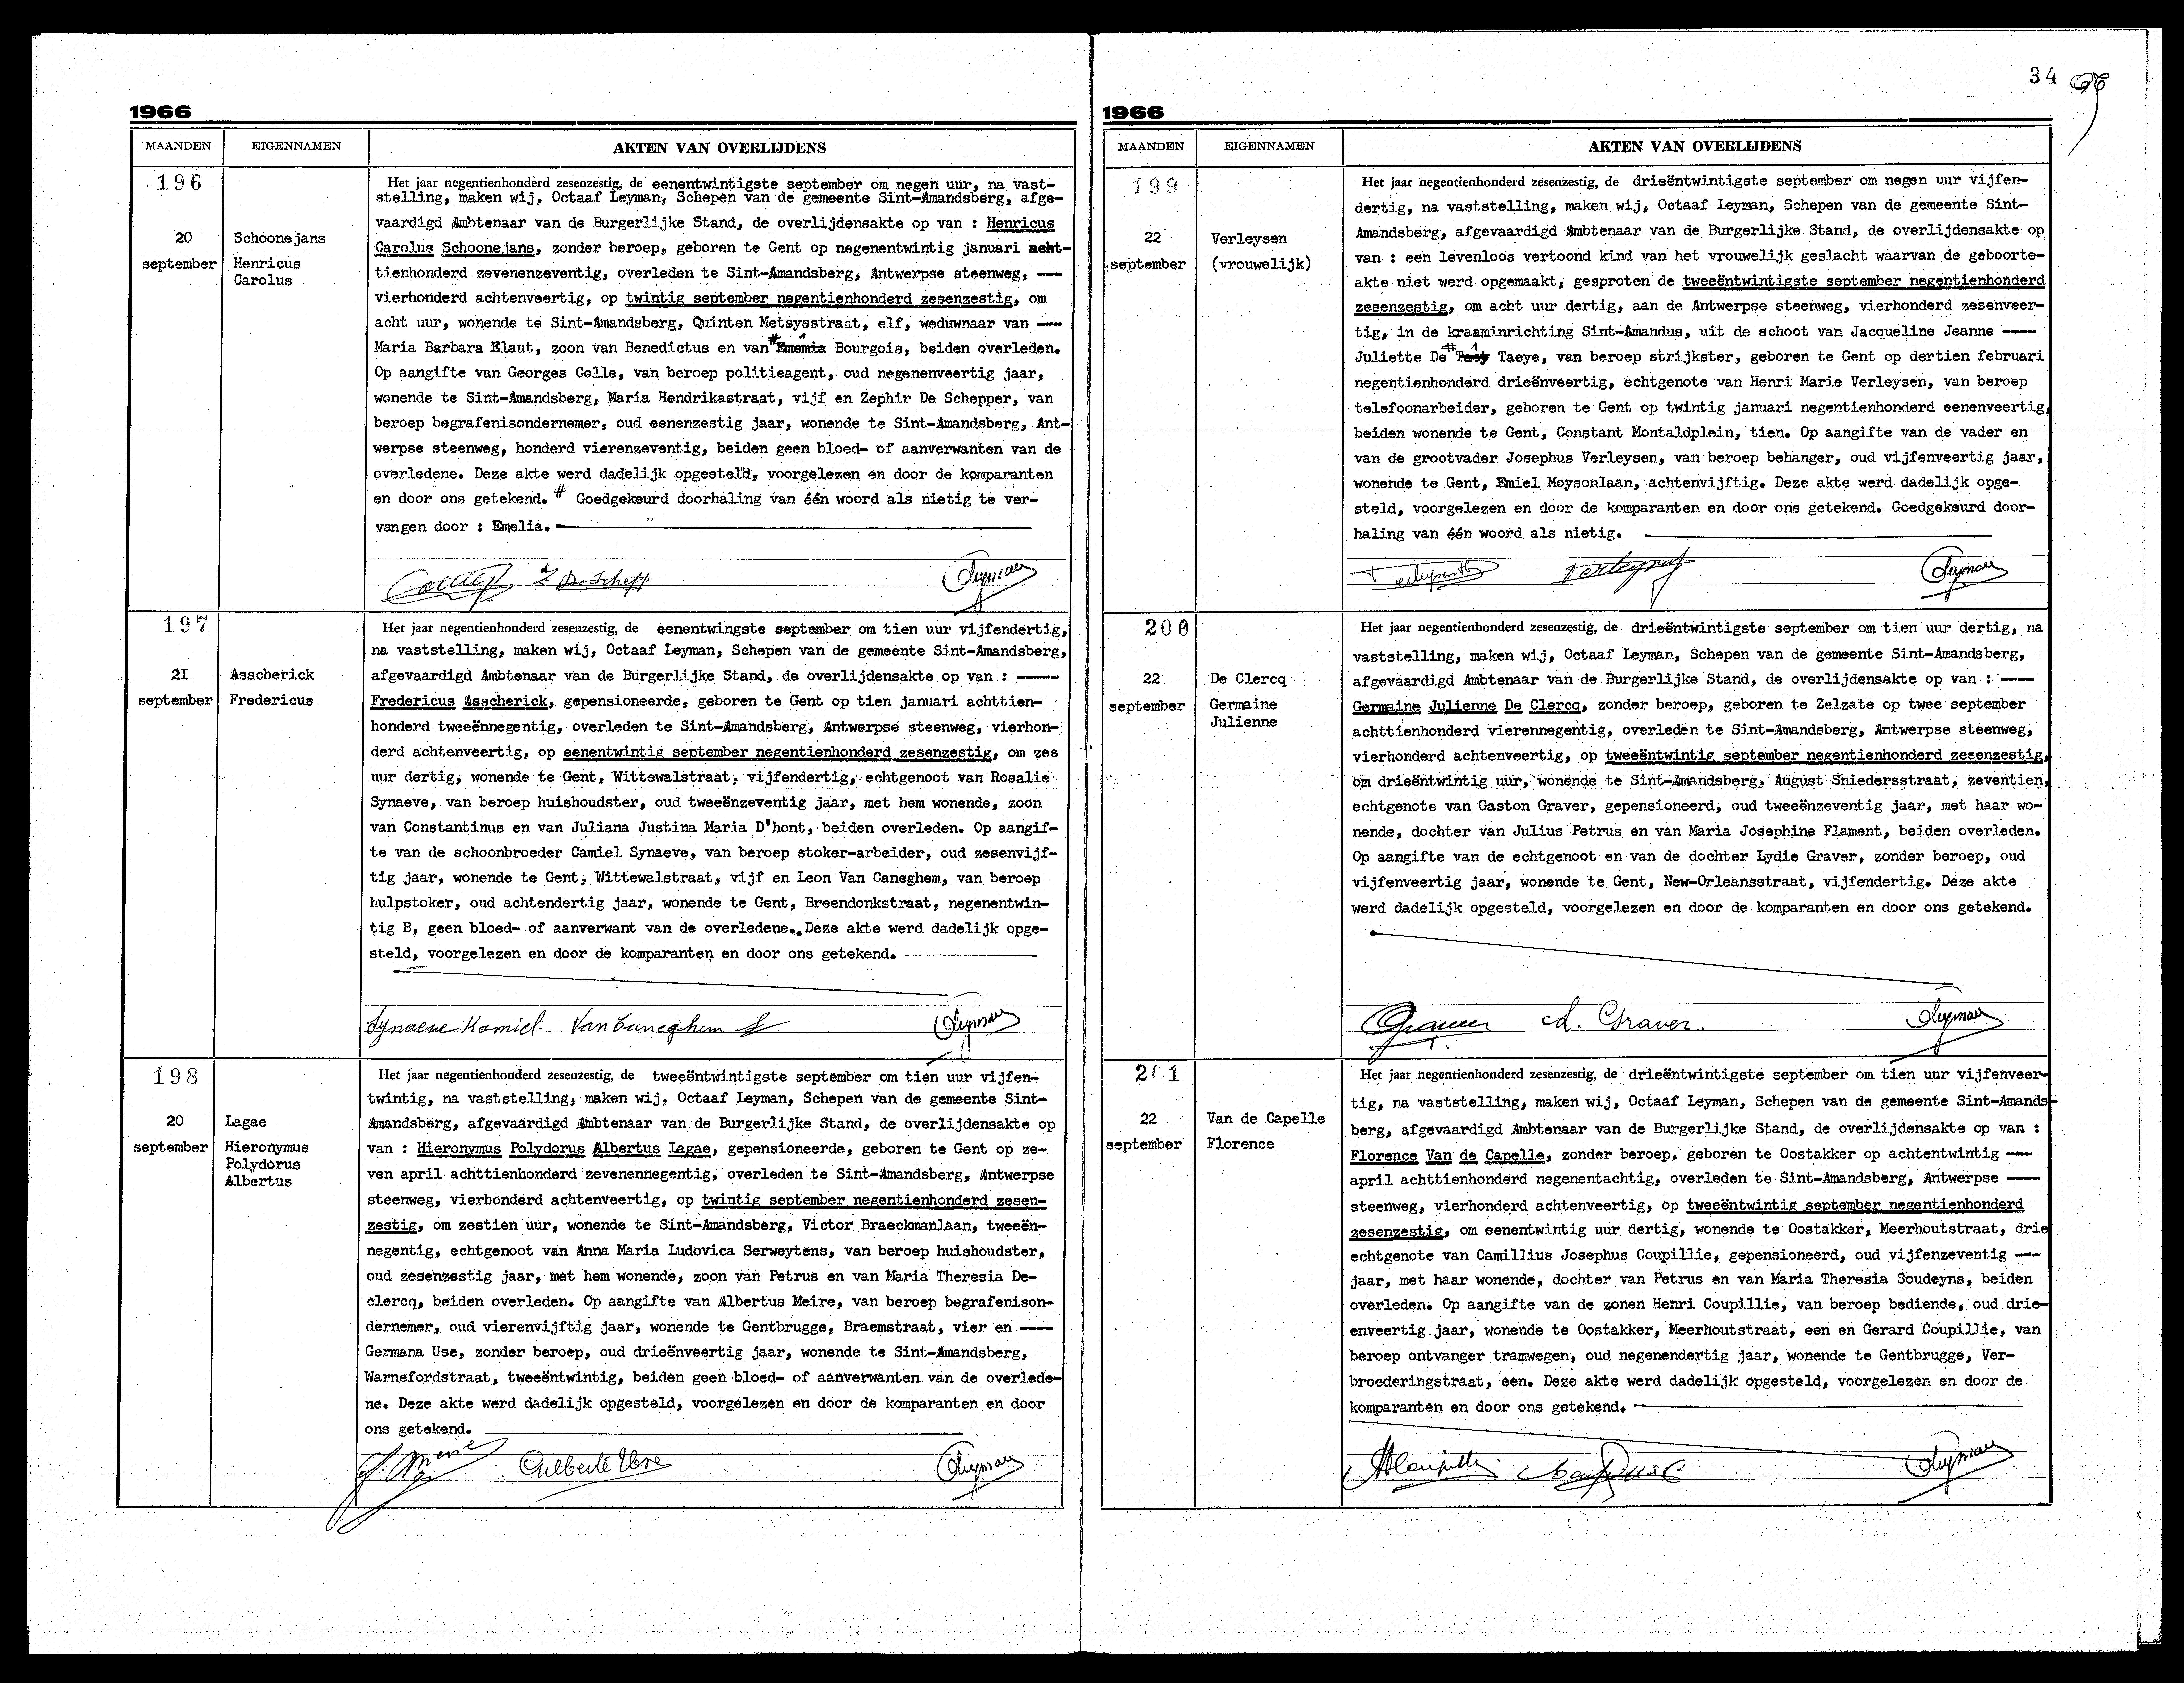 1966
MAANDEN EIGENNAMEN AKTEN VAN OVERLIJDENS
196
20
september
Schoonejans
Henricus
Carolus
Het jaar negentienhonderd zesenzestig, de eenentwintigste september om negen uur, na vast-
stelling, maken wij, Octaaf Leyman, Schepen van de gemeente Sint-Amandsberg, afge-
vaardigd Ambtenaar van de Burgerlijke Stand, de overlijdensakte op van : Henricus
Carolus Schoonejans, zonder beroep, geboren te Gent op negenentwintig januari acht-
tienhonderd zevenenzeventig, overleden te Sint-Amandsberg, Antwerpse steenweg, ---
vierhonderd achtenveertig, op twintig september negentienhonderd zesenzestig, om
acht uur, wonende te Sint-Amandsberg, Quinten Metsysstraat, elf, weduwnaar van ---
Maria Barbara Elaut, zoon van Benedictus en van # Ememia Bourgois, beiden overleden.
Op aangifte van Georges Colle, van beroep politieagent, oud negenenveertig jaar,
wonende te Sint-Amandsberg, Maria Hendrikastraat, vijf en Zephir De Schepper, van
beroep begrafenisondernemer, oud eenenzestig jaar, wonende te Sint-Amandsberg, Ant-
werpse steenweg, honderd vierenzeventig, beiden geen bloed- of aanverwanten van de
overledene. Deze akte werd dadelijk opgesteld, voorgelezen en door de komparanten
en door ons getekend. # Goedgekeurd doorhaling van één woord als nietig te ver-
vangen door : Emelia.
Z De Schepp Leyman
197
21
september
Asscherick
Fredericus
Het jaar negentienhonderd zesenzestig, de eenentwingste september om tien uur vijfendertig,
na vaststelling, maken wij, Octaaf Leyman, Schepen van de gemeente Sint-Amandsberg,
afgevaardigd Ambtenaar van de Burgerlijke Stand, de overlijdensakte op van : ----
Fredericus Asscherick, gepensioneerde, geboren te Gent op tien januari achttien-
honderd tweeënnegentig, overleden te Sint-Amandsberg, Antwerpse steenweg, vierhon-
derd achtenveertig, op eenentwintig september negentienhonderd zesenzestig, om zes
uur dertig, wonende te Gent, Wittewalstraat, vijfendertig, echtgenoot van Rosalie
Synaeve, van beroep huishoudster, oud tweeënzeventig jaar, met hem wonende, zoon
van Constantinus en van Juliana Justina Maria D'hont, beiden overleden. Op aangif-
te van de schoonbroeder Camiel Synaeve, van beroep stoker-arbeider, oud zesenvijf-
tig jaar, wonende te Gent, Wittewalstraat, vijf en Leon Van Caneghem, van beroep
hulpstoker, oud achtendertig jaar, wonende te Gent, Breendonkstraat, negenentwin-
tig B, geen bloed- of aanverwant van de overledene. Deze akte werd dadelijk opge-
steld, voorgelezen en door de komparanten en door ons getekend.
Synaeve Kamiel. Van Caneghem L Leyman
198
20
september
Lagae
Hieronymus
Polydorus
Albertus
Het jaar negentienhonderd zesenzestig, de tweeëntwintigste september om tien uur vijfen-
twintig, na vaststelling, maken wij, Octaaf Leyman, Schepen van de gemeente Sint-
Amandsberg, afgevaardigd Ambtenaar van de Burgerlijke Stand, de overlijdensakte op
van : Hieronymus Polydorus Albertus Lagae, gepensioneerde, geboren te Gent op ze-
ven april achttienhonderd zevenennegentig, overleden te Sint-Amandsberg, Antwerpse
steenweg, vierhonderd achtenveertig, op twintig september negentienhonderd zesen-
zestig, om zestien uur, wonende te Sint-Amandsberg, Victor Braeckmanlaan, tweeën-
negentig, echtgenoot van Anna Maria Ludovica Serweytens, van beroep huishoudster,
oud zesenzestig jaar, met hem wonende, zoon van Petrus en van Maria Theresia De-
clercq, beiden overleden. Op aangifte van Albertus Meire, van beroep begrafenison-
dernemer, oud vierenvijftig jaar, wonende te Gentbrugge, Braemstraat, vier en ----
Germana Use, zonder beroep, oud drieënveertig jaar, wonende te Sint-Amandsberg,
Warnefordstraat, tweeëntwintig, beiden geen bloed- of aanverwanten van de overlede-
ne. Deze akte werd dadelijk opgesteld, voorgelezen en door de komparanten en door
ons getekend.
Meire Leyman
34
1966
MAANDEN EIGENNAMEN AKTEN VAN OVERLIJDENS
199
22
september
Verleysen
(vrouwelijk)
Het jaar negentienhonderd zesenzestig, de drieëntwintigste september om negen uur vijfen-
dertig, na vaststelling, maken wij, Octaaf Leyman, Schepen van de gemeente Sint-
Amandsberg, afgevaardigd Ambtenaar van de Burgerlijke Stand, de overlijdensakte op
van : een levenloos vertoond kind van het vrouwelijk geslacht waarvan de geboorte-
akte niet werd opgemaakt, gesproten de tweeëntwintigste september negentienhonderd
zesenzestig, om acht uur dertig, aan de Antwerpse steenweg, vierhonderd zesenveer-
tig, in de kraaminrichting Sint-Amandus, uit de schoot van Jacqueline Jeanne ----
Juliette De # Taey Taeye, van beroep strijkster, geboren te Gent op dertien februari
negentienhonderd drieënveertig, echtgenote van Henri Marie Verleysen, van beroep
telefoonarbeider, geboren te Gent op twintig januari negentienhonderd eenenveertig,
beiden wonende te Gent, Constant Montaldplein, tien. Op aangifte van de vader en
van de grootvader Josephus Verleysen, van beroep behanger, oud vijfenveertig jaar,
wonende te Gent, Emiel Moysonlaan, achtenvijftig. Deze akte werd dadelijk opge-
steld, voorgelezen en door de komparanten en door ons getekend. Goedgekeurd door-
haling van één woord als nietig.
Leyman
200
22
september
De Clercq
Germaine
Julienne
Het jaar negentienhonderd zesenzestig, de drieëntwintigste september om tien uur dertig, na
vaststelling, maken wij, Octaaf Leyman, Schepen van de gemeente Sint-Amandsberg,
afgevaardigd Ambtenaar van de Burgerlijke Stand, de overlijdensakte op van : ----
Germaine Julienne De Clercq, zonder beroep, geboren te Zelzate op twee september
achttienhonderd vierennegentig, overleden te Sint-Amandsberg, Antwerpse steenweg,
vierhonderd achtenveertig, op tweeëntwintig september negentienhonderd zesenzestig,
om drieëntwintig uur, wonende te Sint-Amandsberg, August Sniedersstraat, zeventien,
echtgenote van Gaston Graver, gepensioneerd, oud tweeënzeventig jaar, met haar wo-
nende, dochter van Julius Petrus en van Maria Josephine Flament, beiden overleden.
Op aangifte van de echtgenoot en van de dochter Lydie Graver, zonder beroep, oud
vijfenveertig jaar, wonende te Gent, New-Orleansstraat, vijfendertig. Deze akte
werd dadelijk opgesteld, voorgelezen en door de komparanten en door ons getekend.
Graver Graver. Leyman
201
22
september
Van de Capelle
Florence
Het jaar negentienhonderd zesenzestig, de drieëntwintigste september om tien uur vijfenveer-
tig, na vaststelling, maken wij, Octaaf Leyman, Schepen van de gemeente Sint-Amands-
berg, afgevaardigd Ambtenaar van de Burgerlijke Stand, de overlijdensakte op van :
Florence Van de Capelle, zonder beroep, geboren te Oostakker op achtentwintig ---
april achttienhonderd negenentachtig, overleden te Sint-Amandsberg, Antwerpse ----
steenweg, vierhonderd achtenveertig, op tweeëntwintig september negentienhonderd
zesenzestig, om eenentwintig uur dertig, wonende te Oostakker, Meerhoutstraat, drie
echtgenote van Camillius Josephus Coupillie, gepensioneerd, oud vijfenzeventig ---
jaar, met haar wonende, dochter van Petrus en van Maria Theresia Soudeyns, beiden
overleden. Op aangifte van de zonen Henri Coupillie, van beroep bediende, oud drie-
enveertig jaar, wonende te Oostakker, Meerhoutstraat, een en Gerard Coupillie, van
beroep ontvanger tramwegen, oud negenendertig jaar, wonende te Gentbrugge, Ver-
broederingstraat, een. Deze akte werd dadelijk opgesteld, voorgelezen en door de
komparanten en door ons getekend.
Leyman